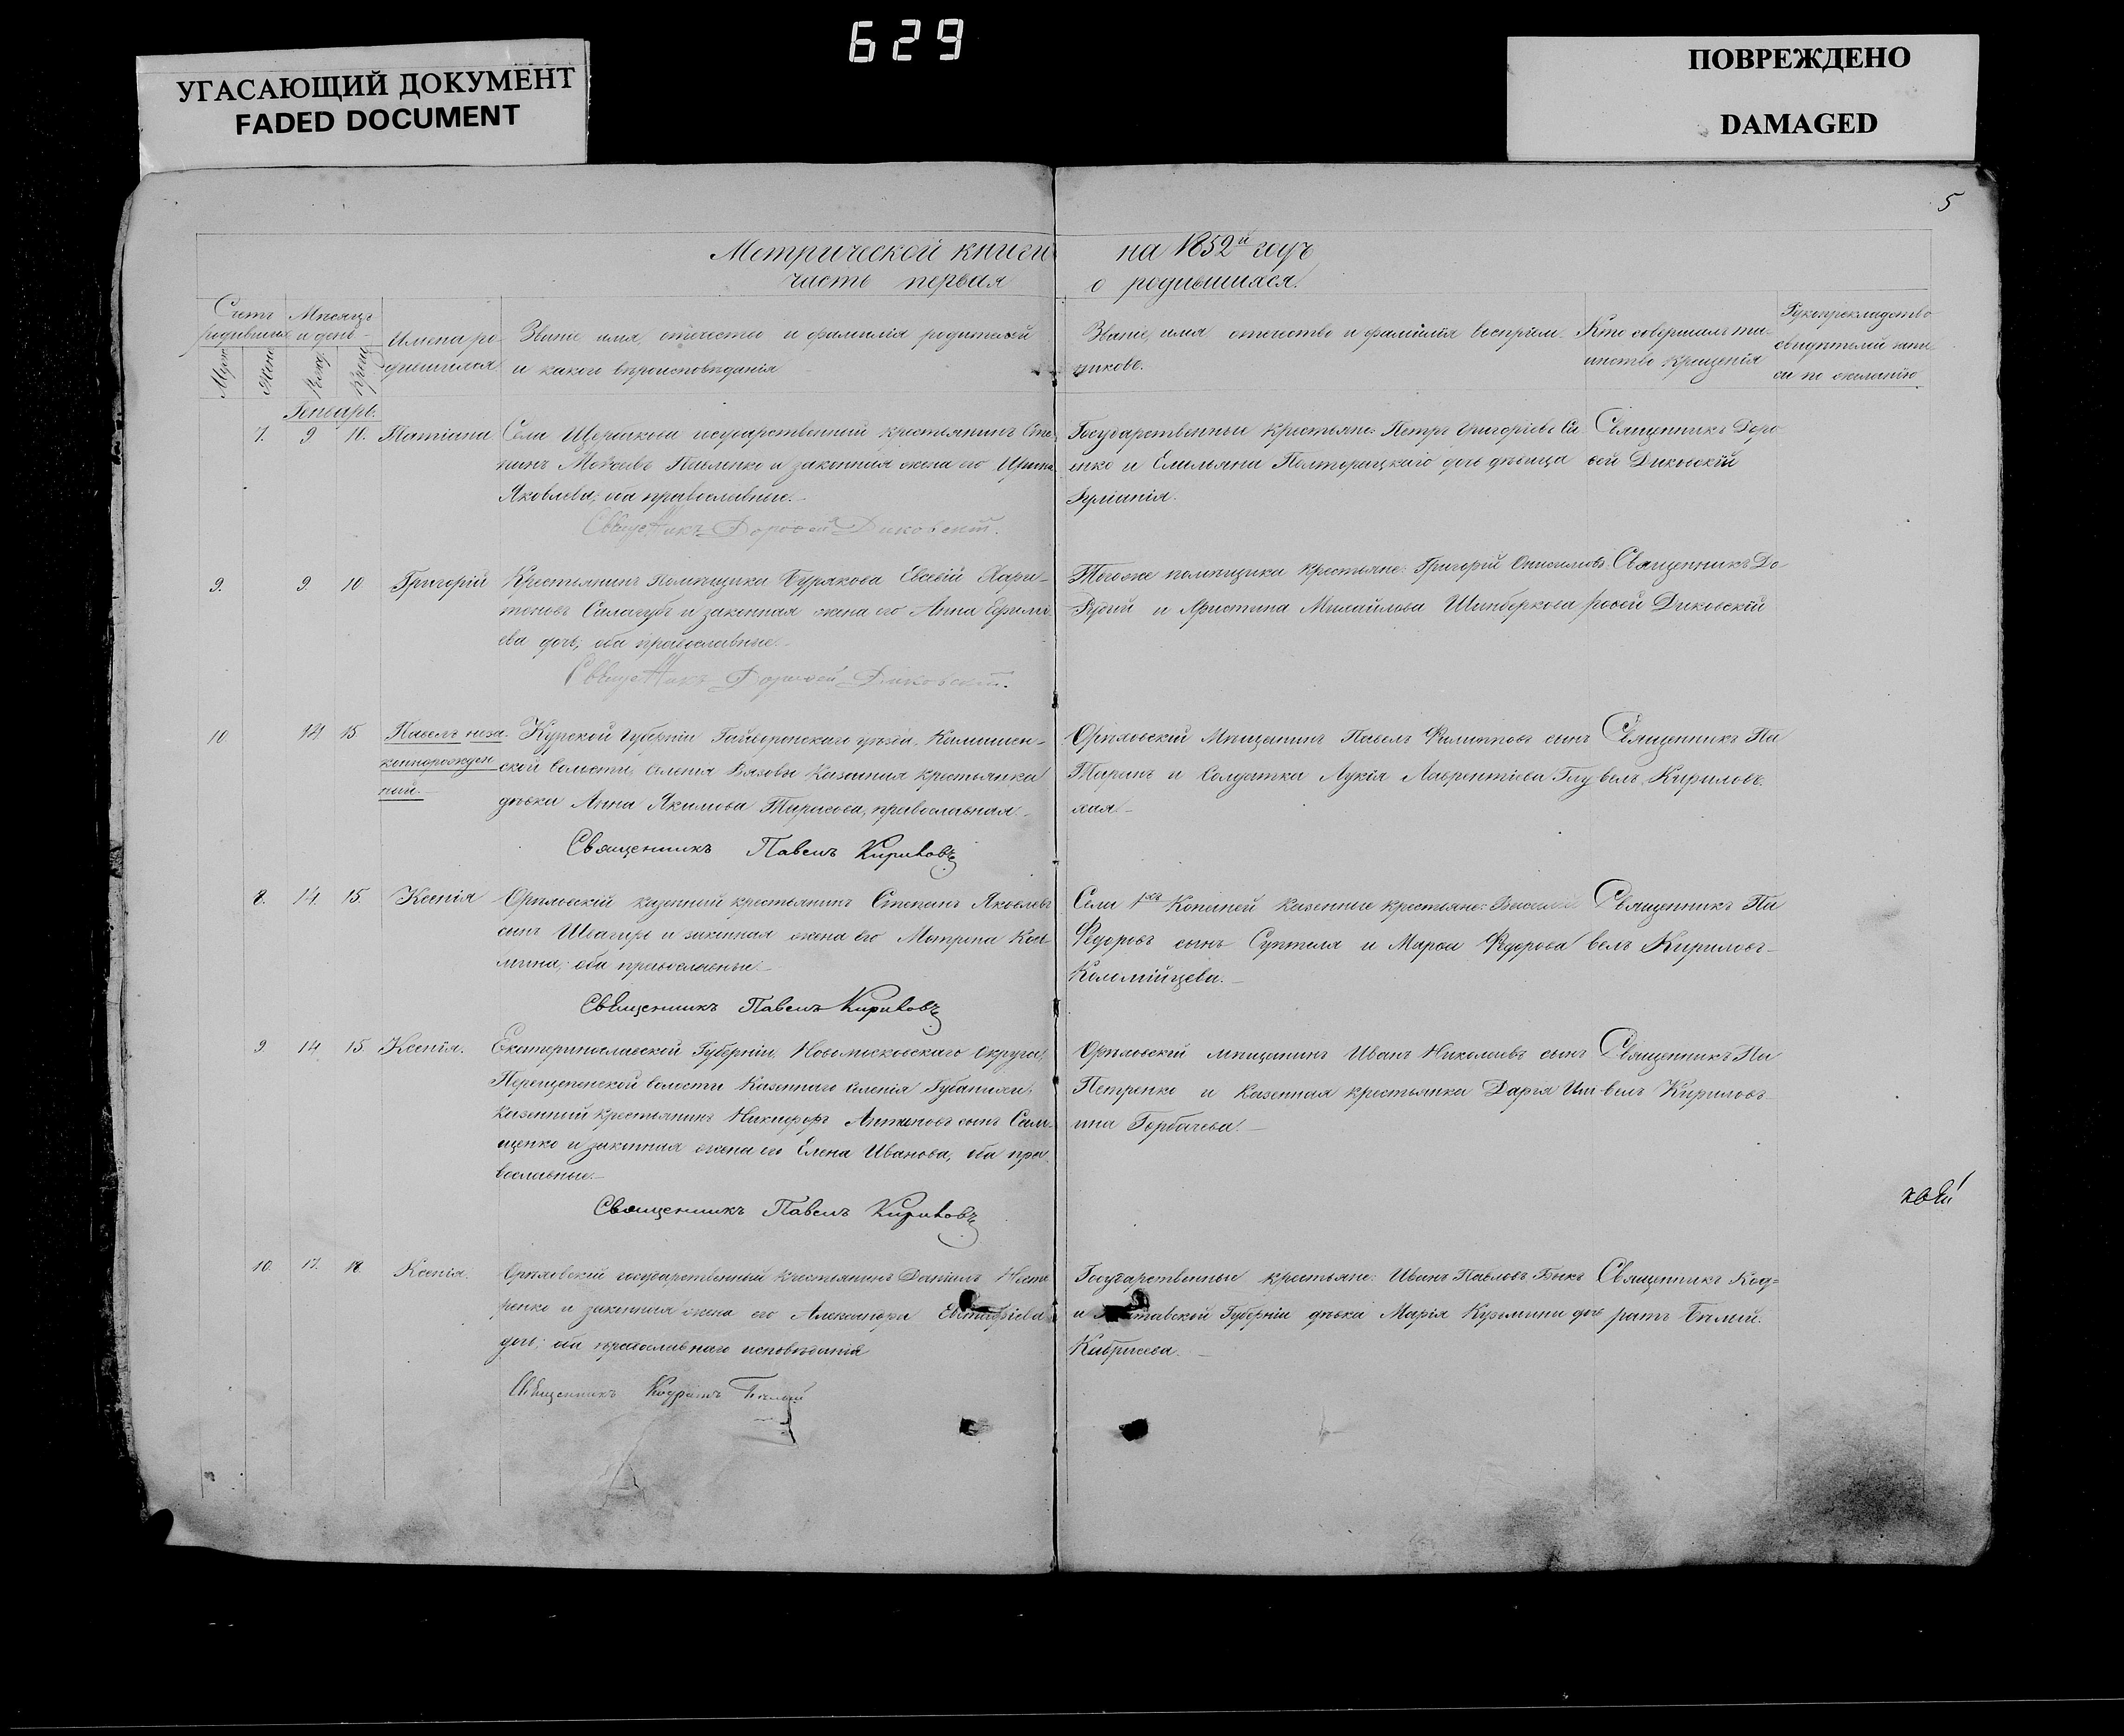 629
УГАСАЮЩИЙ ДОКУМЕНТ
FADED DOCUMENT
ПОВРЕЖДЕНО
DAMAGED
5
Метрической книги на 1852й годъ
часть первая о родившихся.
Счетъ родившихся
Мѣсяцъ и день
Муж.
Жен.
Рожд.
Крещ.
Имена родившихся
Званіе, имя, отечество и фамилія родителей
и какого вѣроисповѣданія
Званіе, имя, отечество и фамилія воспріем-
никовъ.
Кто совершалъ та-
инство крещенія
Рукоприкладство
свидѣтелей запи
си по желанію
Генварь.
7. 9 10. Татіана
Села Щербакова государственный крестьянинъ Сте-
Моѵсеевъ Павленко и законная жена его Ирина
Яковлева; оба православные.
Священникъ Дорофей Диковскій.
Государственные крестьяне: Петръ Григорьевъ
и Емильяна Полторацкаго дочь дѣвица
Іуліанія.
Священникъ Доро
фей Диковскій
9. 9. 10 Григорій
Крестьянинъ помѣщика Бурякова Евсевій Хари-
тоновъ Салагубъ и законная жена его Анна
ева дочь; оба православные.
Священникъ Дорофей Диковскій.
Тогоже помѣщика крестьяне: Григорій Онисимовъ
Рудый и Христина Михайлова
Священникъ До
рофей Диковскій
10 14 15 Павелъ неза-
коннорожден
ный.
Курской губерніи Гайворонскаго уѣзда,
ской волости, селенія Вязовы казенная крестьянка
дѣвка Анна Якимова Тарасова, православная.
Священникъ Павелъ Кириловъ
Орѣховскій мѣщанинъ Павелъ Филипповъ сынъ
Таранъ и солдатка Лукія Лаврентіева Глу
хая.
Священникъ Па
велъ Кириловъ.
8. 14. 15. Ксенія
Орѣховскій казенный крестьянинъ Степанъ Яковлевъ
сынъ Швагиръ и законная жена его Мотрона Козь-
мина; оба православные.
Священникъ Павелъ Кириловъ
Села Копаней казенные крестьяне: Василій
Федоровъ сынъ Суптеля и Марѳа Федорова
Коломійцева.
Священникъ Па
велъ Кириловъ
9. 14. 15. Ксенія.
Екатеринославской Губерніи, Новомосковскаго округа,
Перещепенской волости казеннаго селенія
казенный крестьянинъ Никифоръ Антоновъ сынъ
щенко и законная жена его Елена Иванова, оба пра-
вославные.
Священникъ Павелъ Кириловъ
Орѣховскій мѣщанинъ Иванъ Николаевъ сынъ
Петренко и казенная крестьянка Дарья
ина Горбачева.
Священникъ Па
велъ Кириловъ
10. 17. 18. Ксенія.
Орѣховскій государственный крестьянинъ Даніилъ Несте
ренко и законная жена его Александра Евстафіева
дочь; оба православнаго исповѣданія
Священникъ Кодратъ Бѣлый
Государственные крестьяне: Иванъ Павловъ Быкъ
и Губерніи дѣвка Марія Кузьмина дочь
Священникъ Код=
ратъ Бѣлый.